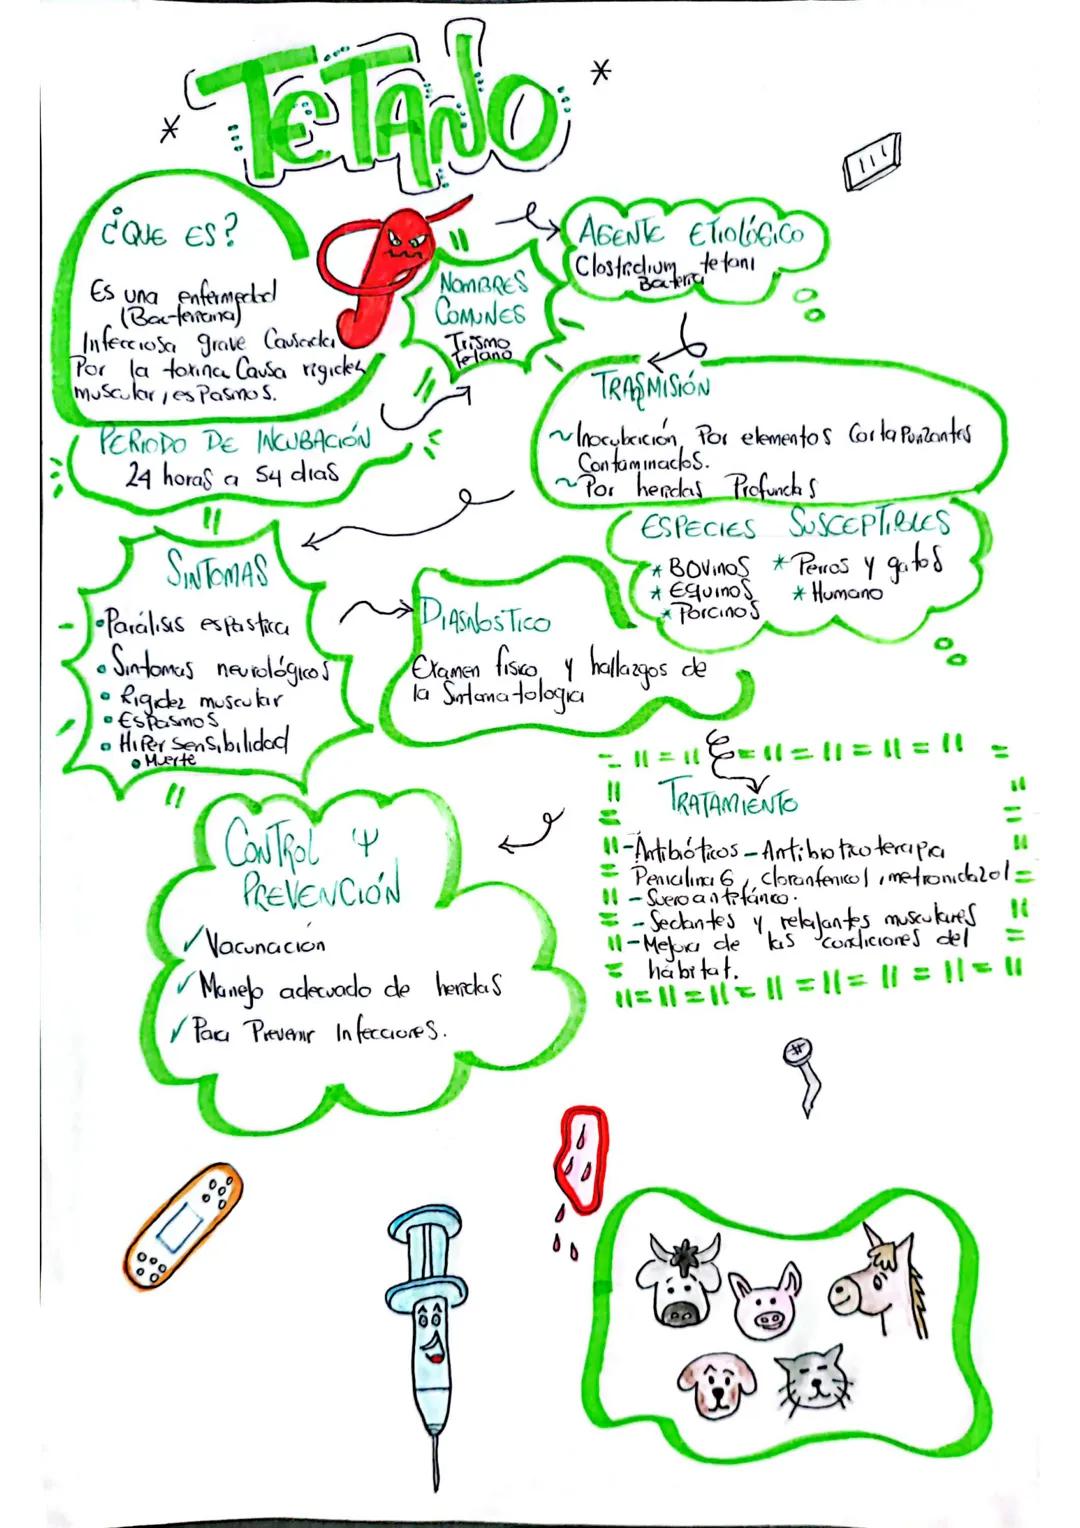 TETANO
¿QUE ES?
Es una enfermedad
(Bacteriana)
Infecciosa grave Causada
Por la toxina Causa rigidez
muscular, esPasmos.
NOMBRES
COMUNES
Trismo
Tetano
AGENTE ETIOLÓGICO
Clostridium tetani
Bacteria
TRASMISIÓN
~Inoculación Por elementos CortaPunzantes
Contaminados.
~Por heridas Profundas
PERIODO DE INCUBACIÓN
24 horas a 54 dias
ESPECIES SUSCEPTIBLES
* BOVINOS * Perros y gatos
* EQUINOS * Humano
* PORCINOS
SINTOMAS
• Parálisis espastica
• Sintomas neurológicos
• Rigidez muscular
• EsPasmos
• HiPersensibilidad
• Muerte
DIAGNOSTICO
Examen fisico y hallazgos de
la Sintomatologia
TRATAMIENTO
-Antibióticos - Antibioticoterapia
Penicilina G, cloranfenicol, metronidazol
- Suero antitánico.
- Sedantes y relajantes musculares
-Mejora de las condiciones del
hábitat.
CONTROL Y
PREVENCIÓN
✓ Vacunación
✓ Manejo adecuado de heridas
✓ Para Prevenir Infecciones.